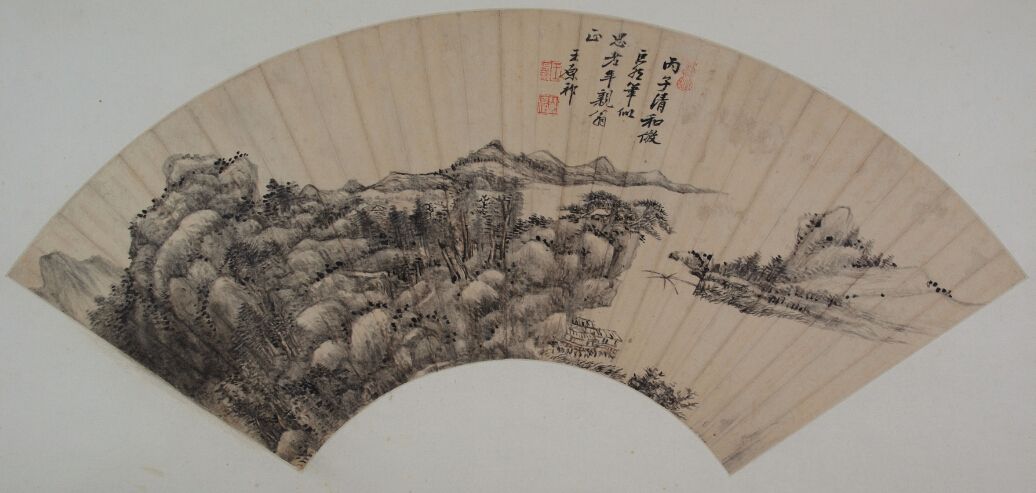 丙子清和倣
巨然筆似
思老年親翁
正
王原祁